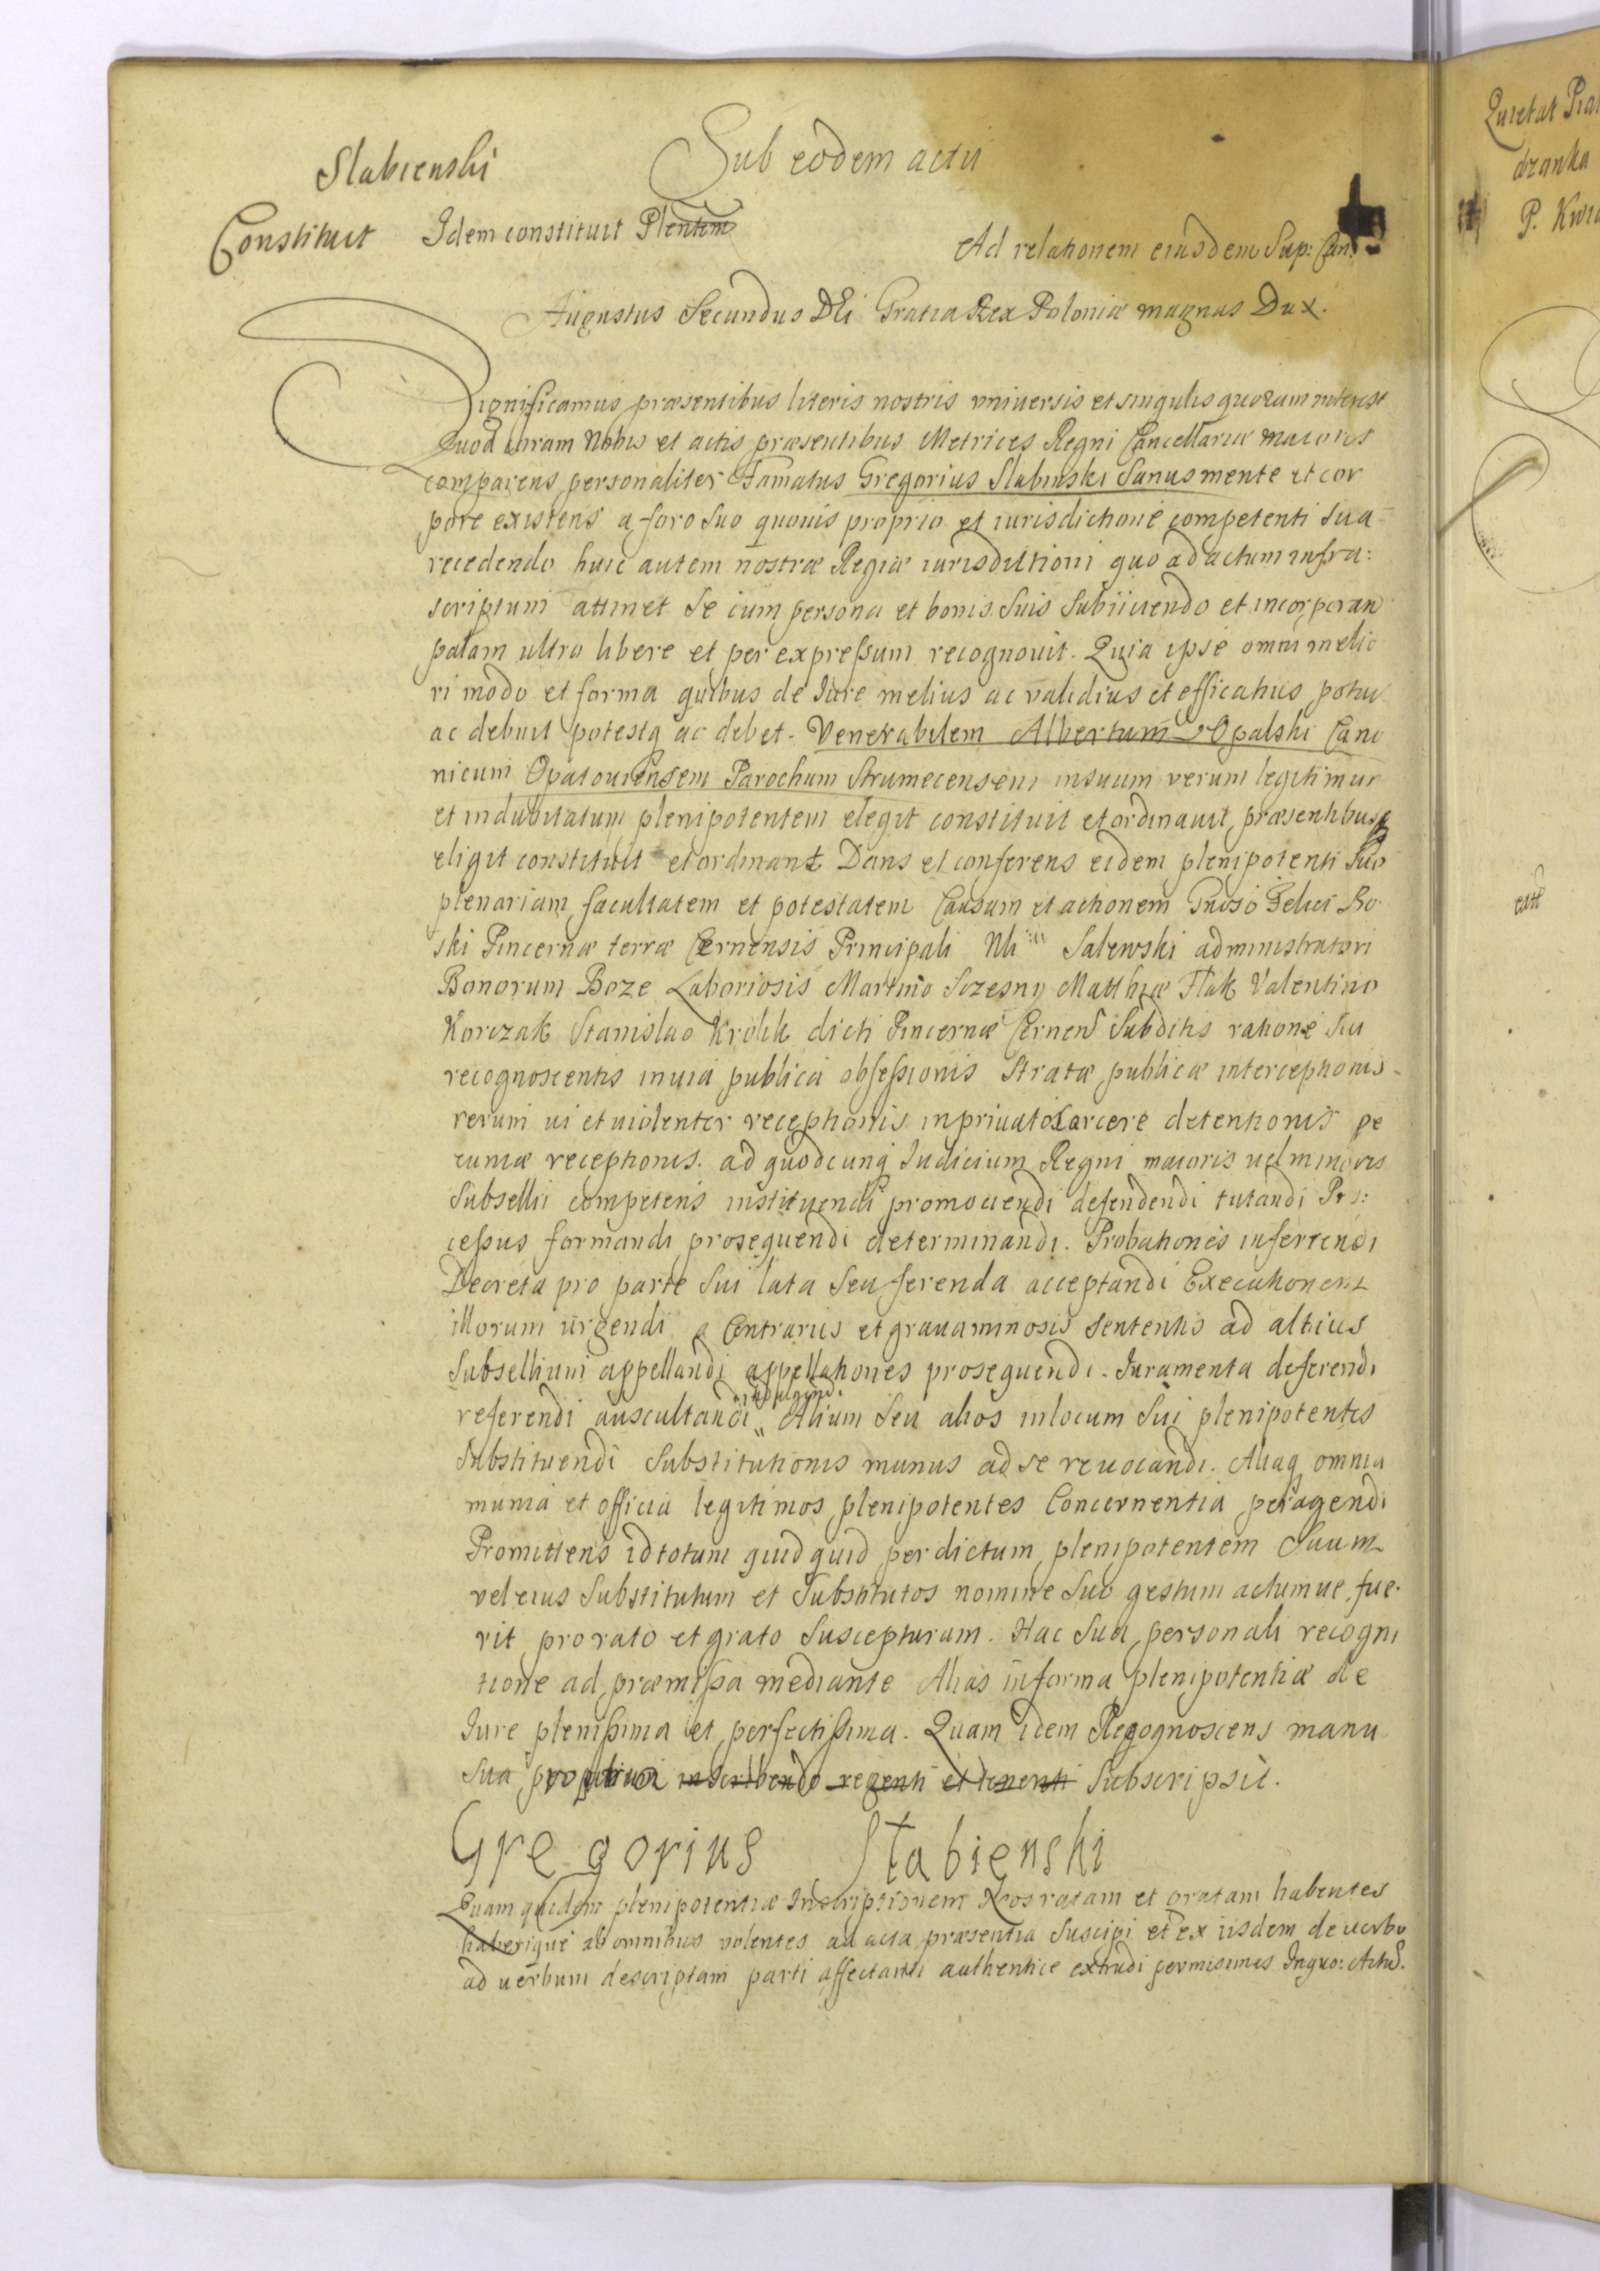 Sub eodem actu
Slabienski
Constituit
Idem constituit Plentem
Ad relationem eiusdem Sup: Can:
Augustus Secundus DEi Gratia Rex Poloniæ magnus Dux.
Significamus præsentibus literis nostris vniuersis et singulis quorum interest
Quod coram Nobis et actis præsentibus Metrices Regni Cancellariæ maioris
comparens personaliter Famatus Gregorius Slabinski Sanus mente et cor
pore existens a foro suo quouis proprio et iurisdictione competenti sua
recedendo huic autem nostræ Regiæ iurisdictioni quo ad actum infra:
scriptum attinet se cum persona et bonis suis subiiciendo et incorporan
palam ultro libere et per expreßum recognouit. Quia ipse omni melio
ri modo et forma quibus de Iure melius ac validius et efficatius potu
ac debuit potestq ac debet. Venerabilem Albertum Opalski Cano
nicum Opatouiensem Parochum Strumecensem in suum verum legitimum
et indubitatum plenipotentem elegit constituit et ordinauit præsentibusq
eligit constituit et ordinant Dans et conferens eidem plenipotenti suo
plenariam facultatem et potestatem Causam et actionem Gnoso Felici
ski Pincernæ terræ Cernensis Principali Salewski administratori
Bonorum Boze Laboriosis Martino Sczesny Matthiæ Flak Valentino
Korczak Stanislao Krolik dicti Pincernæ Cernens subditis ratione sui
recognoscentis in uia publica obseßionis stratæ publicæ interceptionis
rerum ui et uiolenter receptionis in priuato Carcere detentionis pe
cuniæ receptionis. ad quodcunq Iudicium Regni maioris uel minoris
Subsellii competens instituendi promouendi defendendi tutandi Pro:
ceßus formandi prosequendi determinandi. Probationes inferendi
Decreta pro parte sui lata seu ferenda acceptandi Executionem
illorum urgendi a Contrariis et grauaminosis sententiis ad altius
Subsellium appellandi appellationes prosequendi. Iuramenta deferendi
referendi auscultandi Alium seu alios in locum sui plenipotentes
substituendi substitutionis munus ad se reuocandi. Aliaq omnia
munia et officia legitimos plenipotentes Concernentia peragendi
Promittens id totum quidquid per dictum plenipotentem suum
vel eius substitutum et substitutos nomine suo gestum actumue fue.
rit pro rato et grato suscepturum. Hac sua personali recogni
tione ad præmißa mediante Alias in forma plenipotentiæ de
Iure plenißima et perfectißima. Quam idem Recognoscens manu
sua propria inscribendo regenti et tenenti subscripsit.
Gregorius Slabienski
Quam quidem plenipotentiæ Inscriptionem Nos ratam et gratam habentes
haberique ab omnibus volentes ad acta præsentia suscipi et ex iisdem de uerbo
ad uerbum descriptam parti affectanti authentice extradi permisimus Inquo: Actu.
Quietat
dzanka
P.